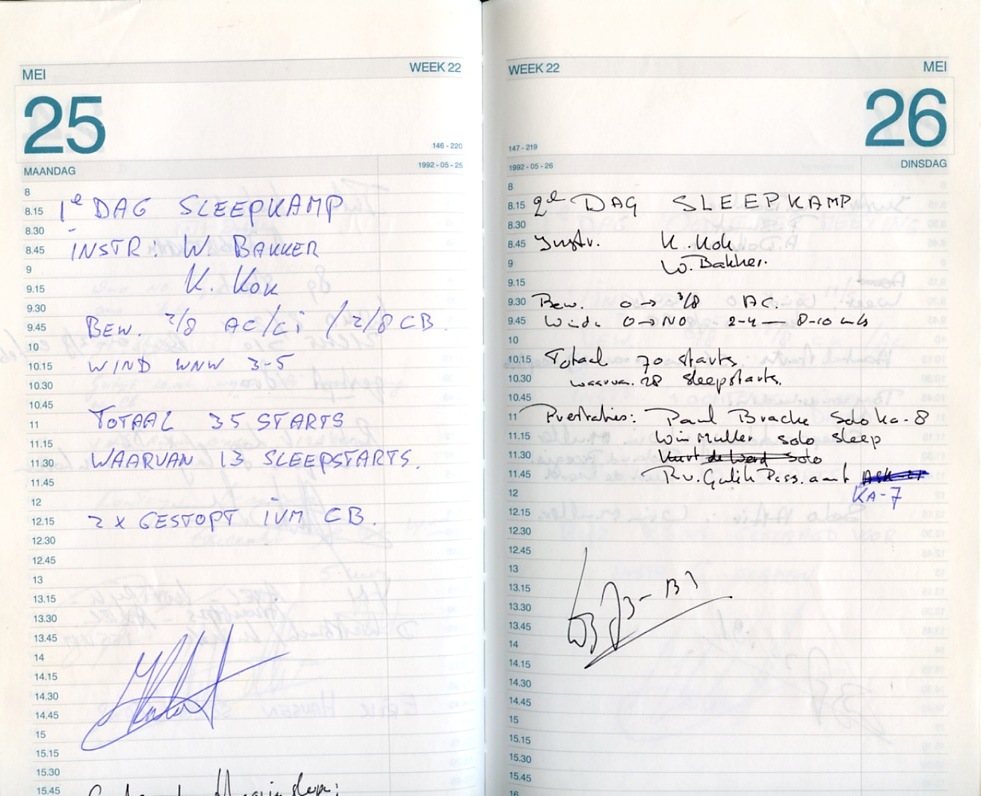 MEI WEEK 22
25
146 - 220
MAANDAG 1992 - 05 - 25
8
8.15 1e DAG SLEEPKAMP
8.30
8.45 INSTR: W. BAKKER
9
9.15 K. KOK
9.30
9.45 BEW. 2/8 AC/Ci / 2/8 CB.
10
10.15 WIND WNW 3-5
10.30
10.45
11 TOTAAL 35 STARTS
11.15
11.30 WAARVAN 13 SLEEPSTARTS.
11.45
12
12.15 2 x GESTOPT IVM CB.
12.30
12.45
13
13.15
13.30
13.45
14
14.15
14.30
14.45
15
15.15
15.30
15.45
WEEK 22 MEI
26
147 - 219
1992 - 05 - 26 DINSDAG
8
8.15 2e DAG SLEEPKAMP
8.30
8.45 Instr. K. Kok
9 W. Bakker.
9.15
9.30 Bew. 0 → 3/8 AC.
9.45 Wind. 0 → NO 2-4 — 8-10 
10
10.15 Totaal 70 starts
10.30 waarvan 28 sleepstarts.
10.45
11 Prestaties: Paul Bracke Solo Ka-8
11.15 Wim Muller solo sleep
11.30 de Solo
11.45 Pass.
12 KA-7
12.15
12.30
12.45
13
13.15
13.30
13.45
14
14.15
14.30
14.45
15
15.15
15.30
15.45
16